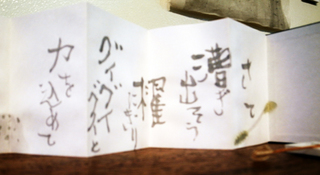 さて
漕ぎ
出そう
櫂
にぎり
グイグイ
グイと
力を込めて